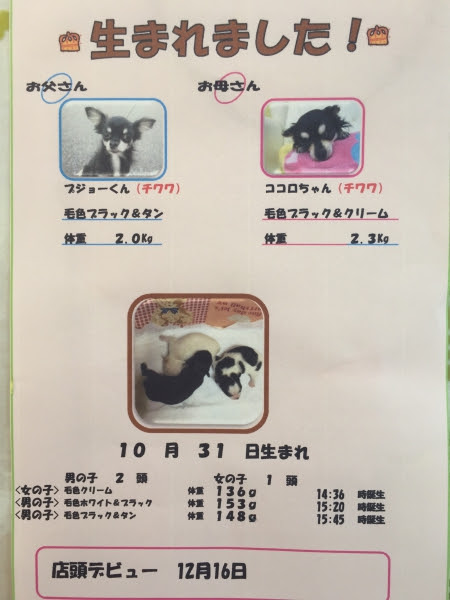 生まれました！
お父さん お母さん
プジョーくん（チワワ） ココロちゃん（チワワ）
毛色ブラック＆タン 毛色ブラック＆クリーム
体重 2.0Kg 体重 2.3Kg
10 月 31 日生まれ
男の子 2 頭 女の子 1 頭
〈女の子〉毛色クリーム 体重 136g 14:36 時誕生
〈男の子〉毛色ホワイト＆ブラック 体重 153g 15:20 時誕生
〈男の子〉毛色ブラック＆タン 体重 148g 15:45 時誕生
店頭デビュー 12月16日